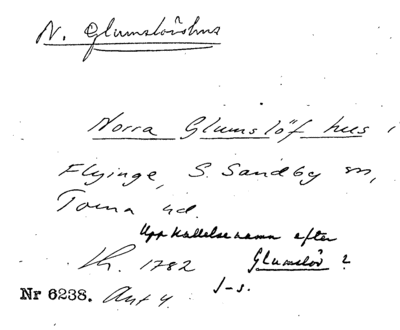 N. Glumslövshus
Norra Glumslöf hus i
Flyinge, S. Sandby sn,
Torna hd.
Uppkallelsenamn efter
Glumslöv?
Th. 1782
J-s.
Nr 6238. Ant 4.